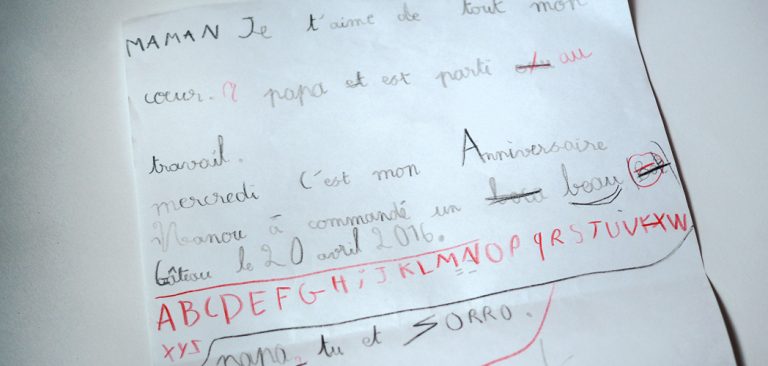 MAMAN Je t'aime de tout mon
coeur. papa et est parti au
travail.
mercredi C'est mon Anniversaire
Nanou à commandé un beau
Gâteau le 20 avril 2016.
ABCDEFGHiJKLMNOPqRSTUVXW
XYS
papa, tu et SORRO.